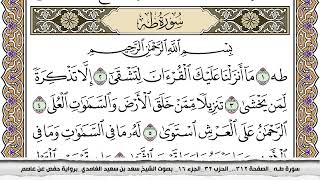 سُورَةُ طه
بِسْمِ اللَّهِ الرَّحْمَٰنِ الرَّحِيمِ
طه ١ مَا أَنزَلْنَا عَلَيْكَ الْقُرْءَانَ لِتَشْقَىٰ ٢ إِلَّا تَذْكِرَةً
لِّمَن يَخْشَىٰ ٣ تَنزِيلًا مِّمَّنْ خَلَقَ الْأَرْضَ وَالسَّمَٰوَٰتِ الْعُلَى ٤
الرَّحْمَٰنُ عَلَى الْعَرْشِ اسْتَوَىٰ ٥ لَهُ مَا فِي السَّمَٰوَٰتِ وَمَا فِي
سورة طـه الصفحة ٣١٢... الحزب ٣٢ الجزء ١٦ بصوت الشيخ سعد بن سعيد الغامدي برواية حفص عن عاصم